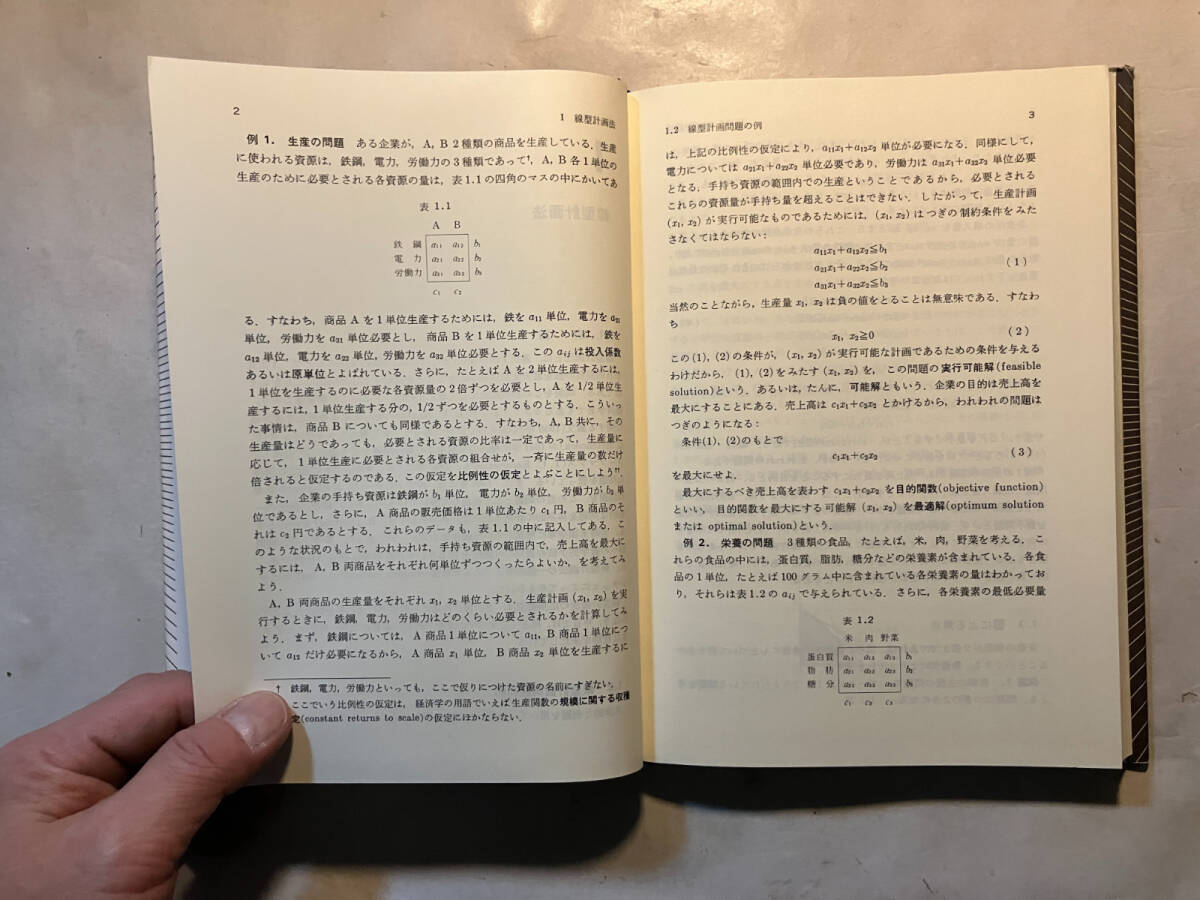 2
1 線型計画法
例 1. 生産の問題 ある企業が，A, B 2種類の商品を生産している．生産
に使われる資源は，鉄鋼，電力，労働力の3種類であって†，A, B各1単位の
生産のために必要とされる各資源の量は，表1.1の四角のマスの中にかいてあ
表 1.1
A B
鉄 鋼 a₁₁ a₁₂ b₁
電 力 a₂₁ a₂₂ b₂
労働力 a₃₁ a₃₂ b₃
c₁ c₂
る．すなわち，商品Aを1単位生産するためには，鉄を a₁₁ 単位，電力を a₂₁
単位，労働力を a₃₁ 単位必要とし，商品Bを1単位生産するためには，鉄を
a₁₂ 単位，電力を a₂₂ 単位，労働力を a₃₂ 単位必要とする．この aᵢⱼ は投入係数
あるいは原単位とよばれている．さらに，たとえばAを2単位生産するには，
1単位を生産するのに必要な各資源量の2倍ずつを必要とし，Aを1/2単位生
産するには，1単位生産する分の，1/2ずつを必要とするものとする．こういっ
た事情は，商品Bについても同様であるとする．すなわち，A, B共に，その
生産量はどうであっても，必要とされる資源の比率は一定であって，生産量に
応じて，1単位生産に必要とされる各資源の組合せが，一斉に生産量の数だけ
倍されると仮定するのである．この仮定を比例性の仮定とよぶことにしよう††．
また，企業の手持ち資源は鉄鋼が b₁ 単位，電力が b₂ 単位，労働力が b₃ 単
位であるとし，さらに，A商品の販売価格は1単位あたり c₁ 円，B商品のそ
れは c₂ 円であるとする．これらのデータも，表1.1の中に記入してある．こ
のような状況のもとで，われわれは，手持ち資源の範囲内で，売上高を最大に
するには，A, B両商品をそれぞれ何単位ずつつくったらよいか，を考えてみ
よう．
A, B両商品の生産量をそれぞれ x₁, x₂ 単位とする．生産計画 (x₁, x₂) を実
行するときに，鉄鋼，電力，労働力はどのくらい必要とされるかを計算してみ
よう．まず，鉄鋼については，A商品1単位について a₁₁，B商品1単位につ
いて a₁₂ だけ必要になるから，A商品 x₁ 単位，B商品 x₂ 単位を生産するに
† 鉄鋼，電力，労働力といっても，ここで仮りにつけた資源の名前にすぎない．
ここでいう比例性の仮定は，経済学の用語でいえば生産関数の規模に関する収穫
(constant returns to scale)の仮定にほかならない．
1.2 線型計画問題の例
3
は，上記の比例性の仮定により，a₁₁x₁+a₁₂x₂ 単位が必要になる．同様にして，
電力については a₂₁x₁+a₂₂x₂ 単位必要であり，労働力は a₃₁x₁+a₃₂x₂ 単位必要
となる．手持ち資源の範囲内での生産ということであるから，必要とされる
これらの資源量が手持ち量を超えることはできない．したがって，生産計画
(x₁, x₂) が実行可能なものであるためには，(x₁, x₂) はつぎの制約条件をみた
さなくてはならない：
a₁₁x₁+a₁₂x₂≦b₁
a₂₁x₁+a₂₂x₂≦b₂ (1)
a₃₁x₁+a₃₂x₂≦b₃
当然のことながら，生産量 x₁, x₂ は負の値をとることは無意味である．すなわ
ち
x₁, x₂≧0 (2)
この(1), (2)の条件が，(x₁, x₂) が実行可能な計画であるための条件を与える
わけだから，(1), (2)をみたす (x₁, x₂) を，この問題の実行可能解(feasible
solution)という．あるいは，たんに，可能解ともいう．企業の目的は売上高を
最大にすることにある．売上高は c₁x₁+c₂x₂ とかけるから，われわれの問題は
つぎのようになる：
条件(1), (2)のもとで
c₁x₁+c₂x₂ (3)
を最大にせよ．
最大にするべき売上高を表わす c₁x₁+c₂x₂ を目的関数(objective function)
といい，目的関数を最大にする可能解 (x₁, x₂) を最適解(optimum solution
または optimal solution)という．
例 2. 栄養の問題 3種類の食品，たとえば，米，肉，野菜を考える．こ
れらの食品の中には，蛋白質，脂肪，糖分などの栄養素が含まれている．各食
品の1単位，たとえば100グラム中に含まれている各栄養素の量はわかってお
り，それらは表1.2の aᵢⱼ で与えられている．さらに，各栄養素の最低必要量
表 1.2
米 肉 野菜
蛋白質 a₁₁ a₁₂ a₁₃ b₁
脂 肪 a₂₁ a₂₂ a₂₃ b₂
糖 分 a₃₁ a₃₂ a₃₃ b₃
c₁ c₂ c₃